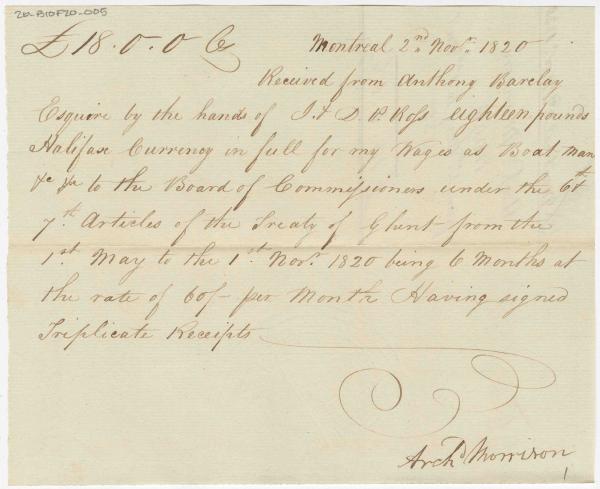 26-B10F20-005
£18.0.0 Cy Montreal 2nd Novr. 1820
Received from Anthony Barclay
Esquire by the hands of J. & D. P. Ross eighteen pounds
Halifax Currency in full for my Wages as Boat man
&c &c to the Board of Commissioners under the 6th &
7th Articles of the Treaty of Ghent from the
1st May to the 1st Novr. 1820 being 6 Months at
the rate of 60/- per Month Having signed
Triplicate Receipts
Archd Morrison
1